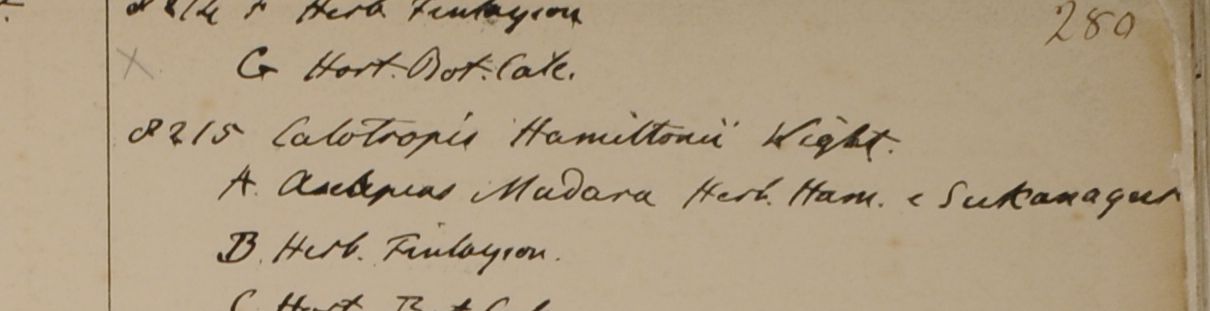 8214 F Herb. Finlayson
280
X G Hort. Bot. Calc.
8215 Calotropis Hamiltonii Wight.
A. Asclepias Madara Herb. Ham. e Sukanagur
B. Herb. Finlayson.
C Hort. Bot. Cal